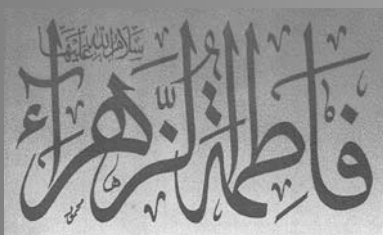 سَلَامُ اللهِ عَلَيْهَا
فَاطِمَةُ الزَّهْرَاء